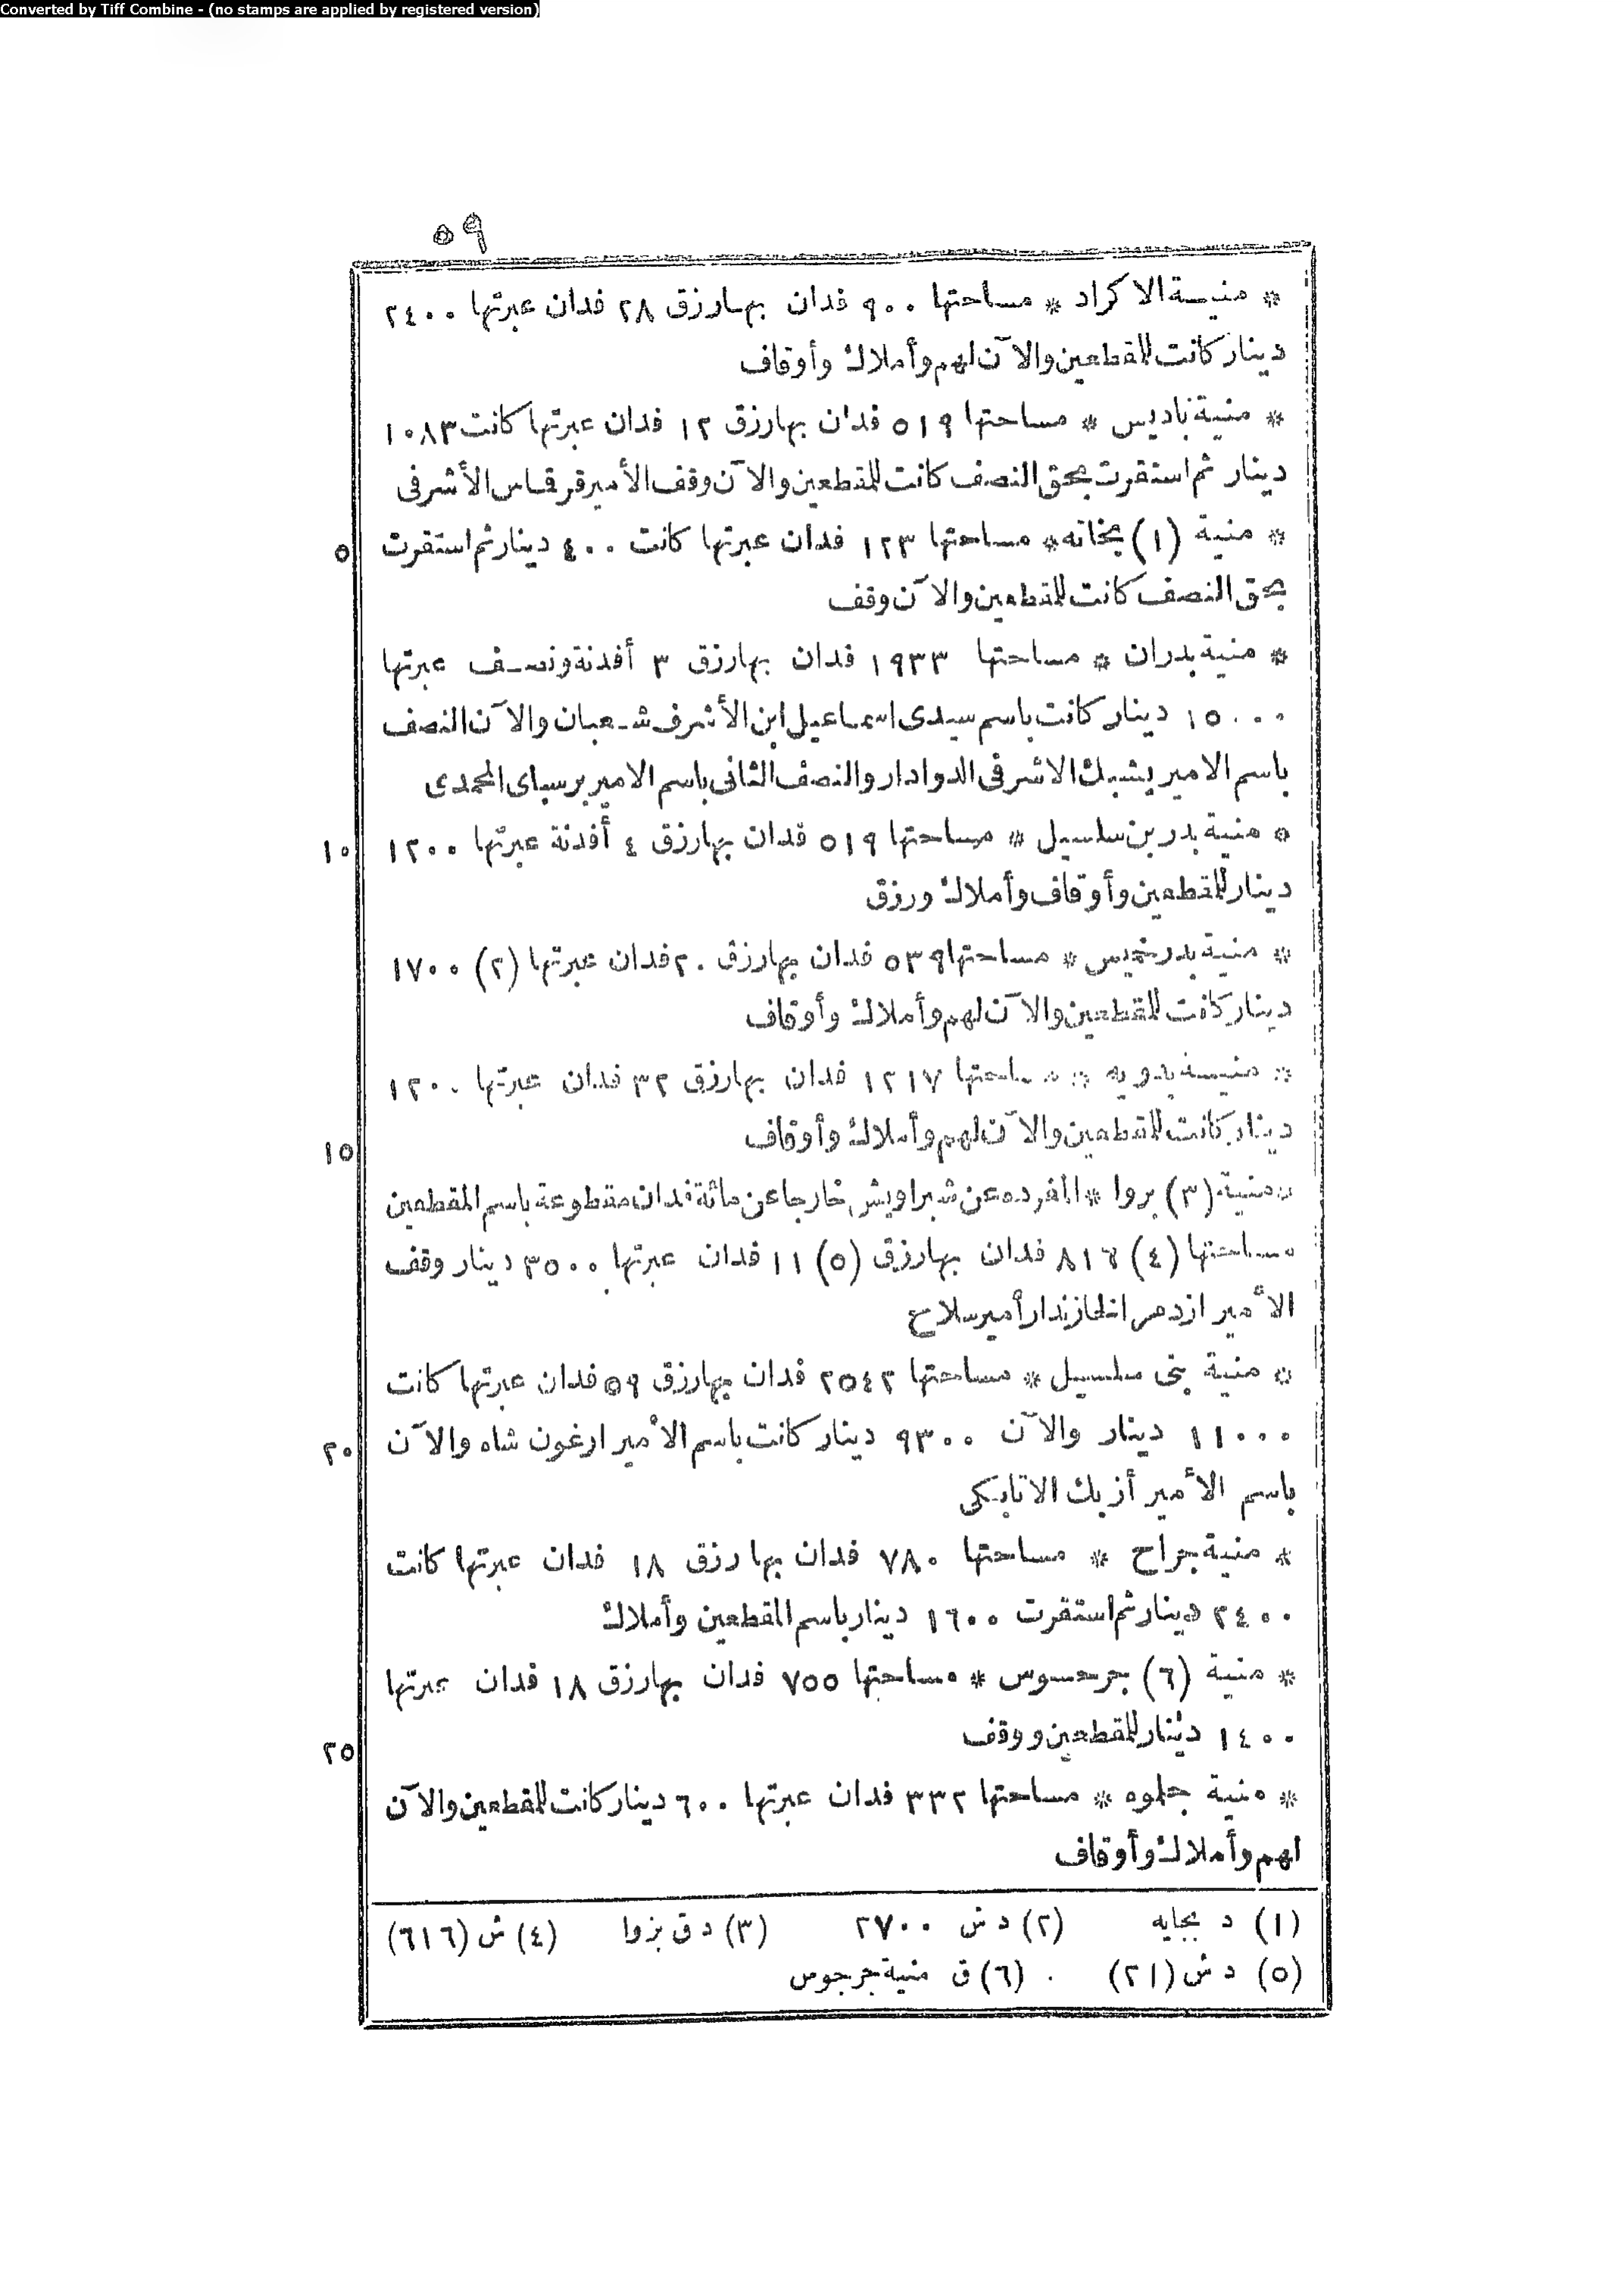 Converted by Tiff Combine - (no stamps are applied by registered version)
٥٩
* منية الاكراد * مساحتها ٩٠٠ فدان بها رزق ٢٨ فدان عبرتها ٢٤٠٠
دينار كانت للمقطعين والآن لهم وأملاك وأوقاف
* منية باديس * مساحتها ٥١٩ فدان بها رزق ١٢ فدان عبرتها كانت ١٠٨٣
دينار ثم استقرت بحق النصف كانت للمقطعين والآن وقف الأمير قرقماس الأشرفى
٥ * منية (١) بخانه * مساحتها ١٢٣ فدان عبرتها كانت ٤٠٠ دينار ثم استقرت
بحق النصف كانت للمقطعين والآن وقف
* منية بدران * مساحتها ١٩٣٣ فدان بها رزق ٣ أفدنة ونصف عبرتها
١٥٠٠٠ دينار كانت باسم سيدى اسماعيل ابن الأشرف شعبان والآن النصف
باسم الامير يشبك الاشرفى الدوادار والنصف الثانى باسم الامير برسباى المحمدى
١٠ * منية بدر بن سلسيل * مساحتها ٥١٩ فدان بها رزق ٤ أفدنة عبرتها ١٢٠٠
دينار للمقطعين وأوقاف وأملاك ورزق
* منية بدر خميس * مساحتها ٥٣٩ فدان بها رزق ٢٠ فدان عبرتها (٢) ١٧٠٠
دينار كانت للمقطعين والآن لهم وأملاك وأوقاف
* منية بدويه * مساحتها ١٢١٧ فدان بها رزق ٣٢ فدان عبرتها ١٢٠٠
١٥ دينار كانت للمقطعين والآن لهم وأملاك وأوقاف
* منية (٣) بروا * المفرده عن شبراويش خارجا عن مائة فدان مقطوعة باسم المقطعين
مساحتها (٤) ٨١٦ فدان بها رزق (٥) ١١ فدان عبرتها ٣٥٠٠ دينار وقف
الأمير ازدمر الخازندار أمير سلاح
* منية بنى سلسيل * مساحتها ٢٥٤٢ فدان بها رزق ٥٩ فدان عبرتها كانت
٢٠ ١١٠٠٠ دينار والآن ٩٣٠٠ دينار كانت باسم الأمير ارغون شاه والآن
باسم الأمير أزبك الاتابكى
* منية جراح * مساحتها ٧٨٠ فدان بها رزق ١٨ فدان عبرتها كانت
٢٤٠٠ دينار ثم استقرت ١٦٠٠ دينار باسم المقطعين وأملاك
* منية (٦) جرحسوس * مساحتها ٧٥٥ فدان بها رزق ١٨ فدان عبرتها
٢٥ ١٤٠٠ دينار للمقطعين ووقف
* منية جلوه * مساحتها ٣٣٢ فدان عبرتها ٦٠٠ دينار كانت للمقطعين والآن
لهم وأملاك وأوقاف
(١) د بجايه (٢) د ش ٢٧٠٠ (٣) د ق بزوا (٤) ش (٦١٦)
(٥) د ش (٢١) (٦) ق منية جرجوس